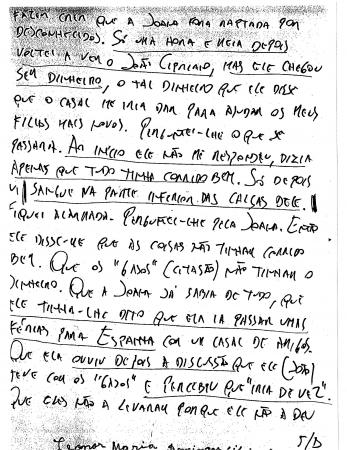 FAZER CRER QUE A JOANA FORA RAPTADA POR
DESCONHECIDOS. SÓ UMA HORA E MEIA DEPOIS
VOLTEI A VER O JOÃO CIPRIANO, MAS ELE CHEGOU
SEM DINHEIRO, O TAL DINHEIRO QUE ELE DISSE
QUE O CASAL ME IRIA DAR PARA AJUDAR OS MEUS
FILHOS MAIS NOVOS. PERGUNTEI-LHE O QUE SE
PASSARA. AO INÍCIO ELE NÃO ME RESPONDEU, DIZIA
APENAS QUE TUDO TINHA CORRIDO BEM. SÓ DEPOIS
VI SANGUE NA PARTE INFERIOR DAS CALÇAS DELE.
FIQUEI ALARMADA. PERGUNTEI-LHE PELA JOANA. ENTÃO
ELE DISSE-ME QUE AS COISAS NÃO TINHAM CORRIDO
BEM. QUE OS "GAJOS" (CITAÇÃO) NÃO TINHAM O
DINHEIRO. QUE A JOANA JÁ SABIA DE TUDO, QUE
ELE TINHA-LHE DITO QUE ELA IA PASSAR UMAS
FÉRIAS PARA ESPANHA COM UM CASAL DE AMIGOS.
QUE ELA OUVIU DEPOIS A DISCUSSÃO QUE ELE (JOÃO)
TEVE COM OS "GAJOS" E PERCEBEU QUE "IRIA DE VEZ".
QUE ELES NÃO A LEVARAM PORQUE ELE NÃO A DEU
Leonor Maria